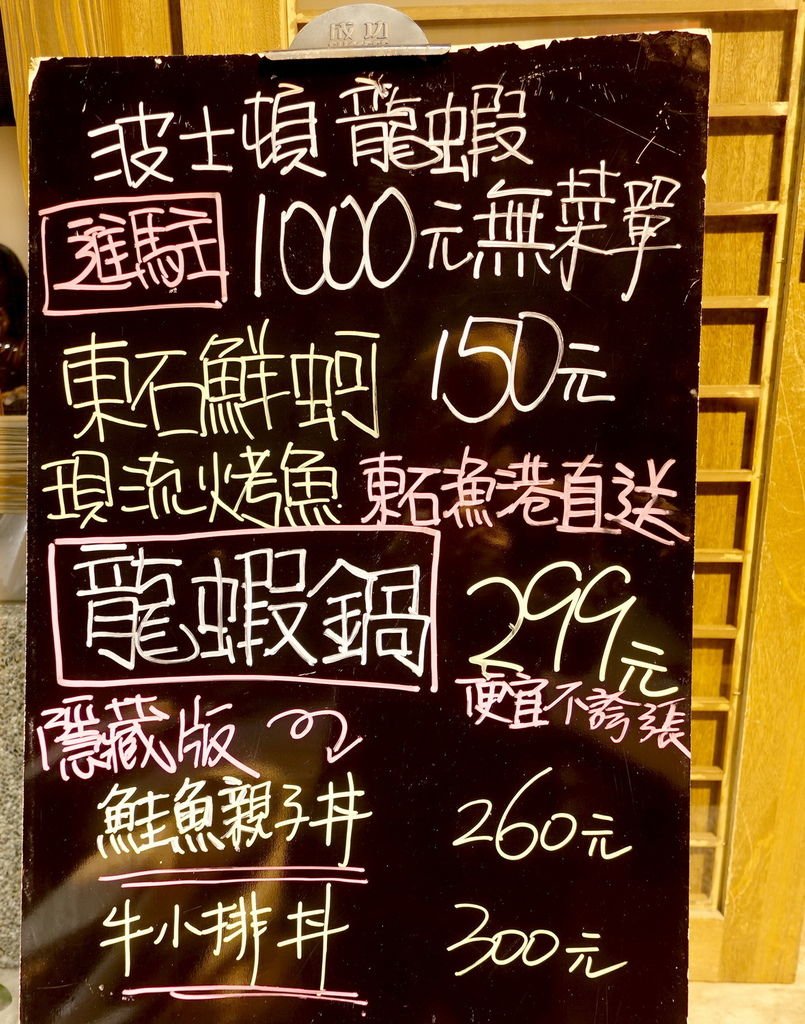 成功
波士頓龍蝦
進駐 1000元無菜單
東石鮮蚵 150元
現流烤魚 東石漁港直送
龍蝦鍋 299元
便宜不誇張
隱藏版
鮭魚親子丼 260元
牛小排丼 300元